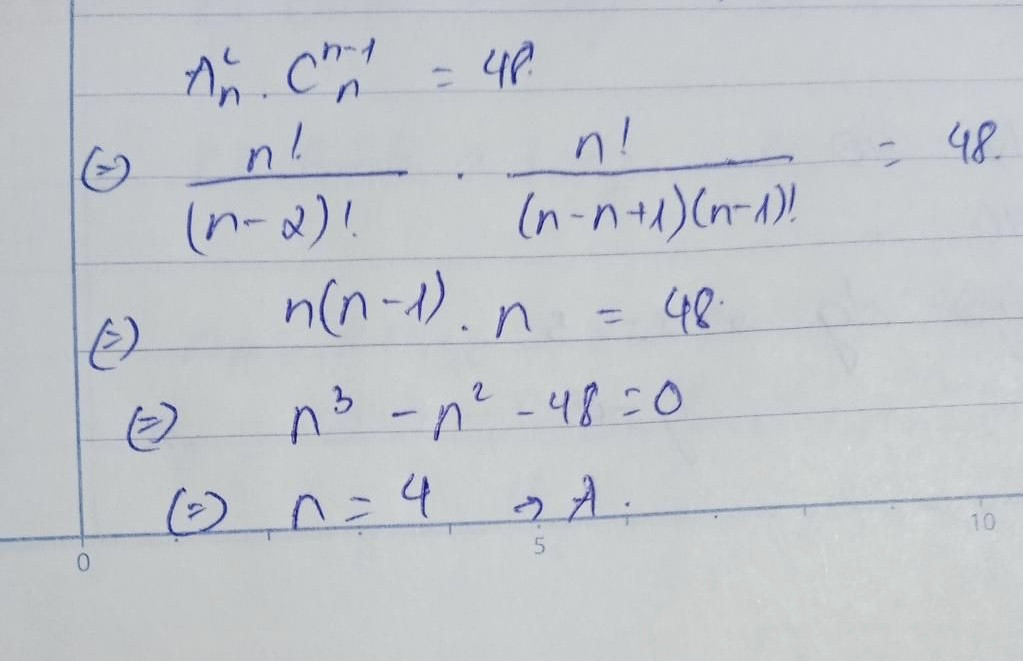 A²ₙ . Cⁿ⁻¹ₙ = 48.
(=) n! / (n-2)! . n! / (n-n+1)(n-1)! = 48.
(=) n(n-1) . n = 48.
(=) n³ - n² - 48 = 0
(=) n = 4 → A.
0 5 10